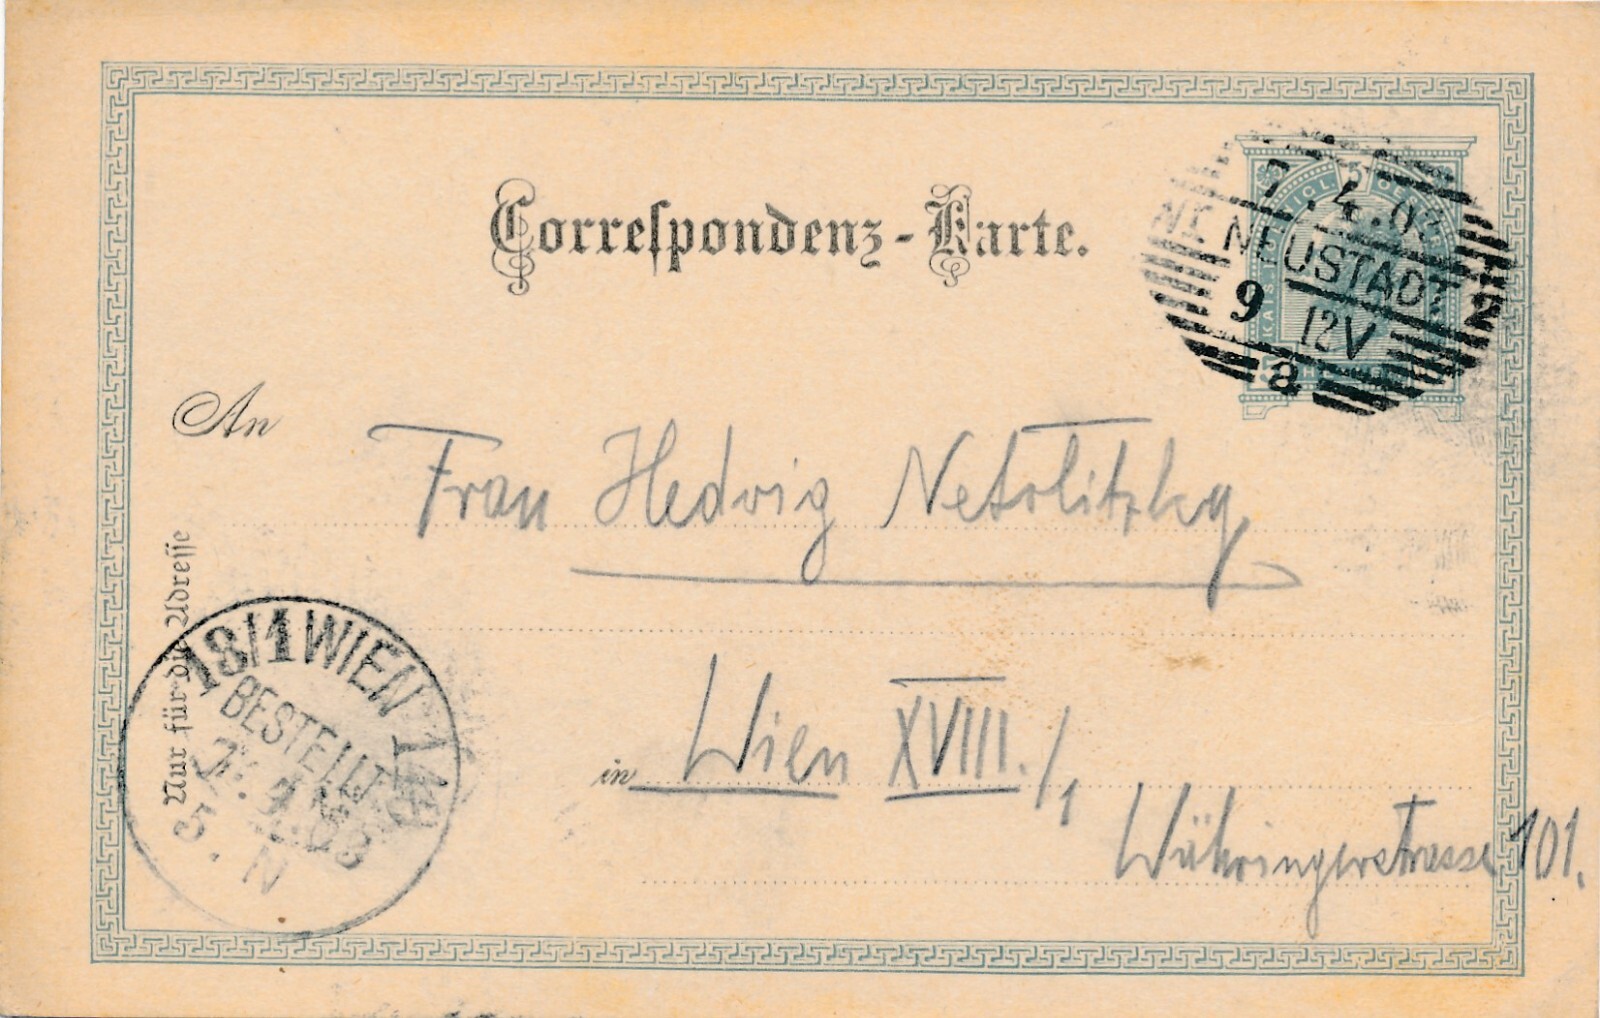 Correspondenz-Karte.
7.4.03
NEUSTADT
9 12V
a
5
An
Frau Hedwig Netolitzky,
Nur für die Adresse
18/1 WIEN
BESTELLT
5. N
in Wien XVIII./1
Währingerstrasse 101.